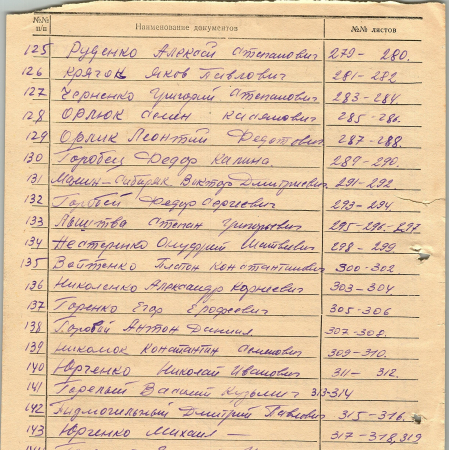 №№ п/п Наименование документов №№ листов
125 Руденко Алексей Степанович 279- 280.
126 Крячок Яков Павлович 281-282.
127 Черненко Григорий Степанович 283-284.
128 Орлюк Касянович 285-286.
129 Орлик Леонтий Федотович 287-288.
130 Горобец Федор Калина 289-290.
131 Мамин-Сибиряк Виктор Дмитриевич 291-292
132 Федор Сергеевич 293-294
133 Лыштва Степан Григорьевич 295-296-297
134 Нестеренко Онуфрий 298-299
135 Войтенко Платон Константинович 300-302
136 Николенко Александр Корнеевич 303-304
137 Горенко Егор Ерофеевич 305-306
138 Горовый Антон Данил 307-308.
139 Николюк Константин 309-310.
140 Юрченко Николай Иванович 311- 312.
141 Горелый Василий Кузьмич 313-314
142 Пидмогильный Дмитрий Павлович 315-316.
143 Юрченко Михаил — 317-318,319